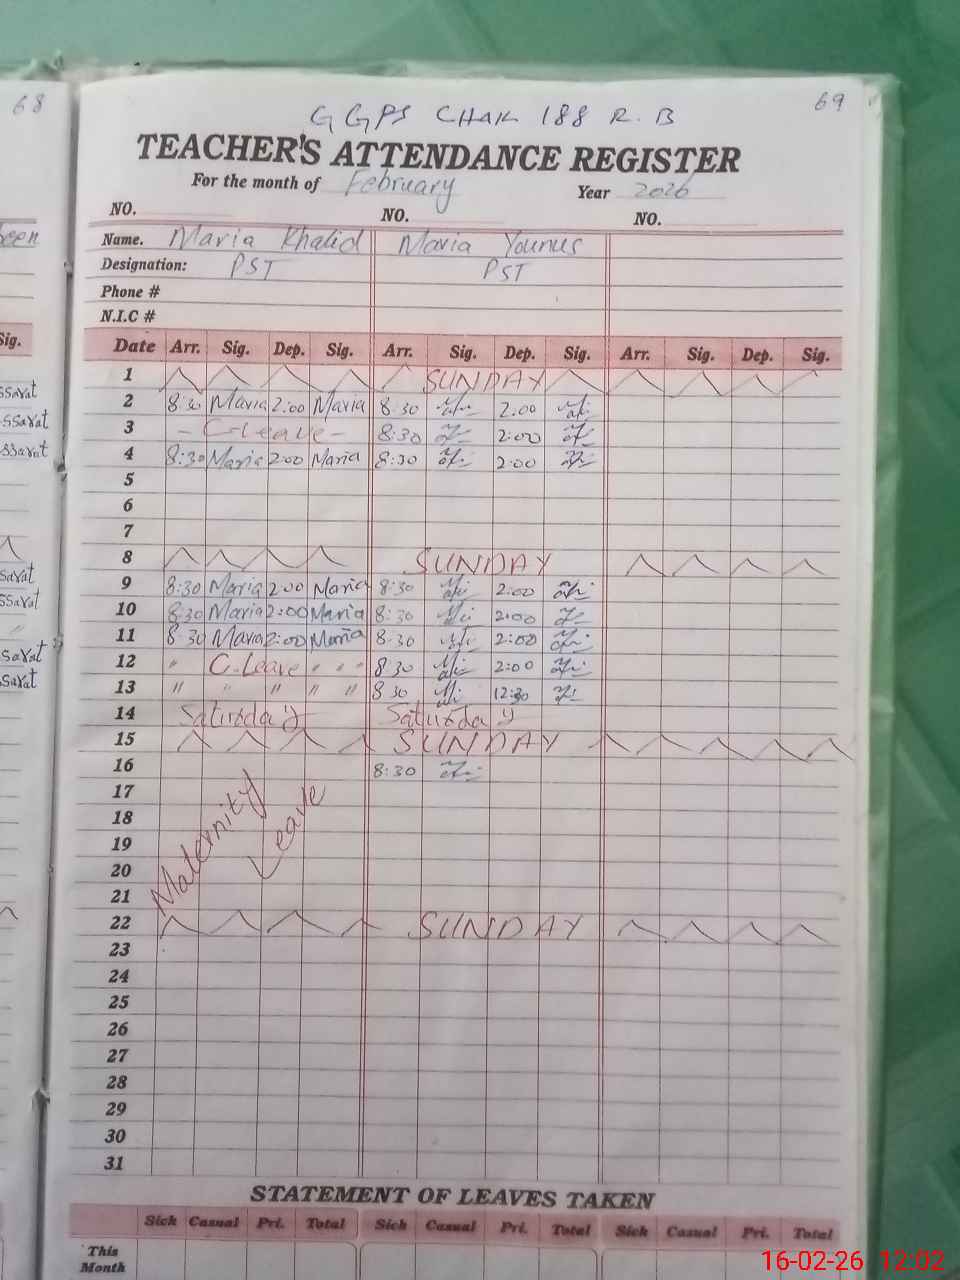 68
69
G GPS CHAK 188 R.B
TEACHER'S ATTENDANCE REGISTER
For the month of February Year 2026
NO. NO. NO.
Name. Maria Khalid Maria Younus
Designation: PST PST
Phone #
N.I.C #
Sig.
Date Arr. Sig. Dep. Sig. Arr. Sig. Dep. Sig. Arr. Sig. Dep. Sig.
1 SUNDAY
2 8:30 Maria 2:00 Maria 8:30 2:00
3 - C-Leave - 8:30 2:00
4 8:30 Maria 2:00 Maria 8:30 2:00
5
6
7
8 SUNDAY
9 8:30 Maria 2:00 Maria 8:30 2:00
10 8:30 Maria 2:00 Maria 8:30 2:00
11 8:30 Maria 2:00 Maria 8:30 2:00
12 " C-Leave " " " 8:30 2:00
13 " " " " " 8:30 12:30
14 Saturday Saturday
15 SUNDAY
16 8:30
17
18
19
20
21
Maternity Leave
22 SUNDAY
23
24
25
26
27
28
29
30
31
STATEMENT OF LEAVES TAKEN
Sick Casual Pri. Total Sick Casual Pri. Total Sick Casual Pri. Total
This
Month
16-02-26 12:02